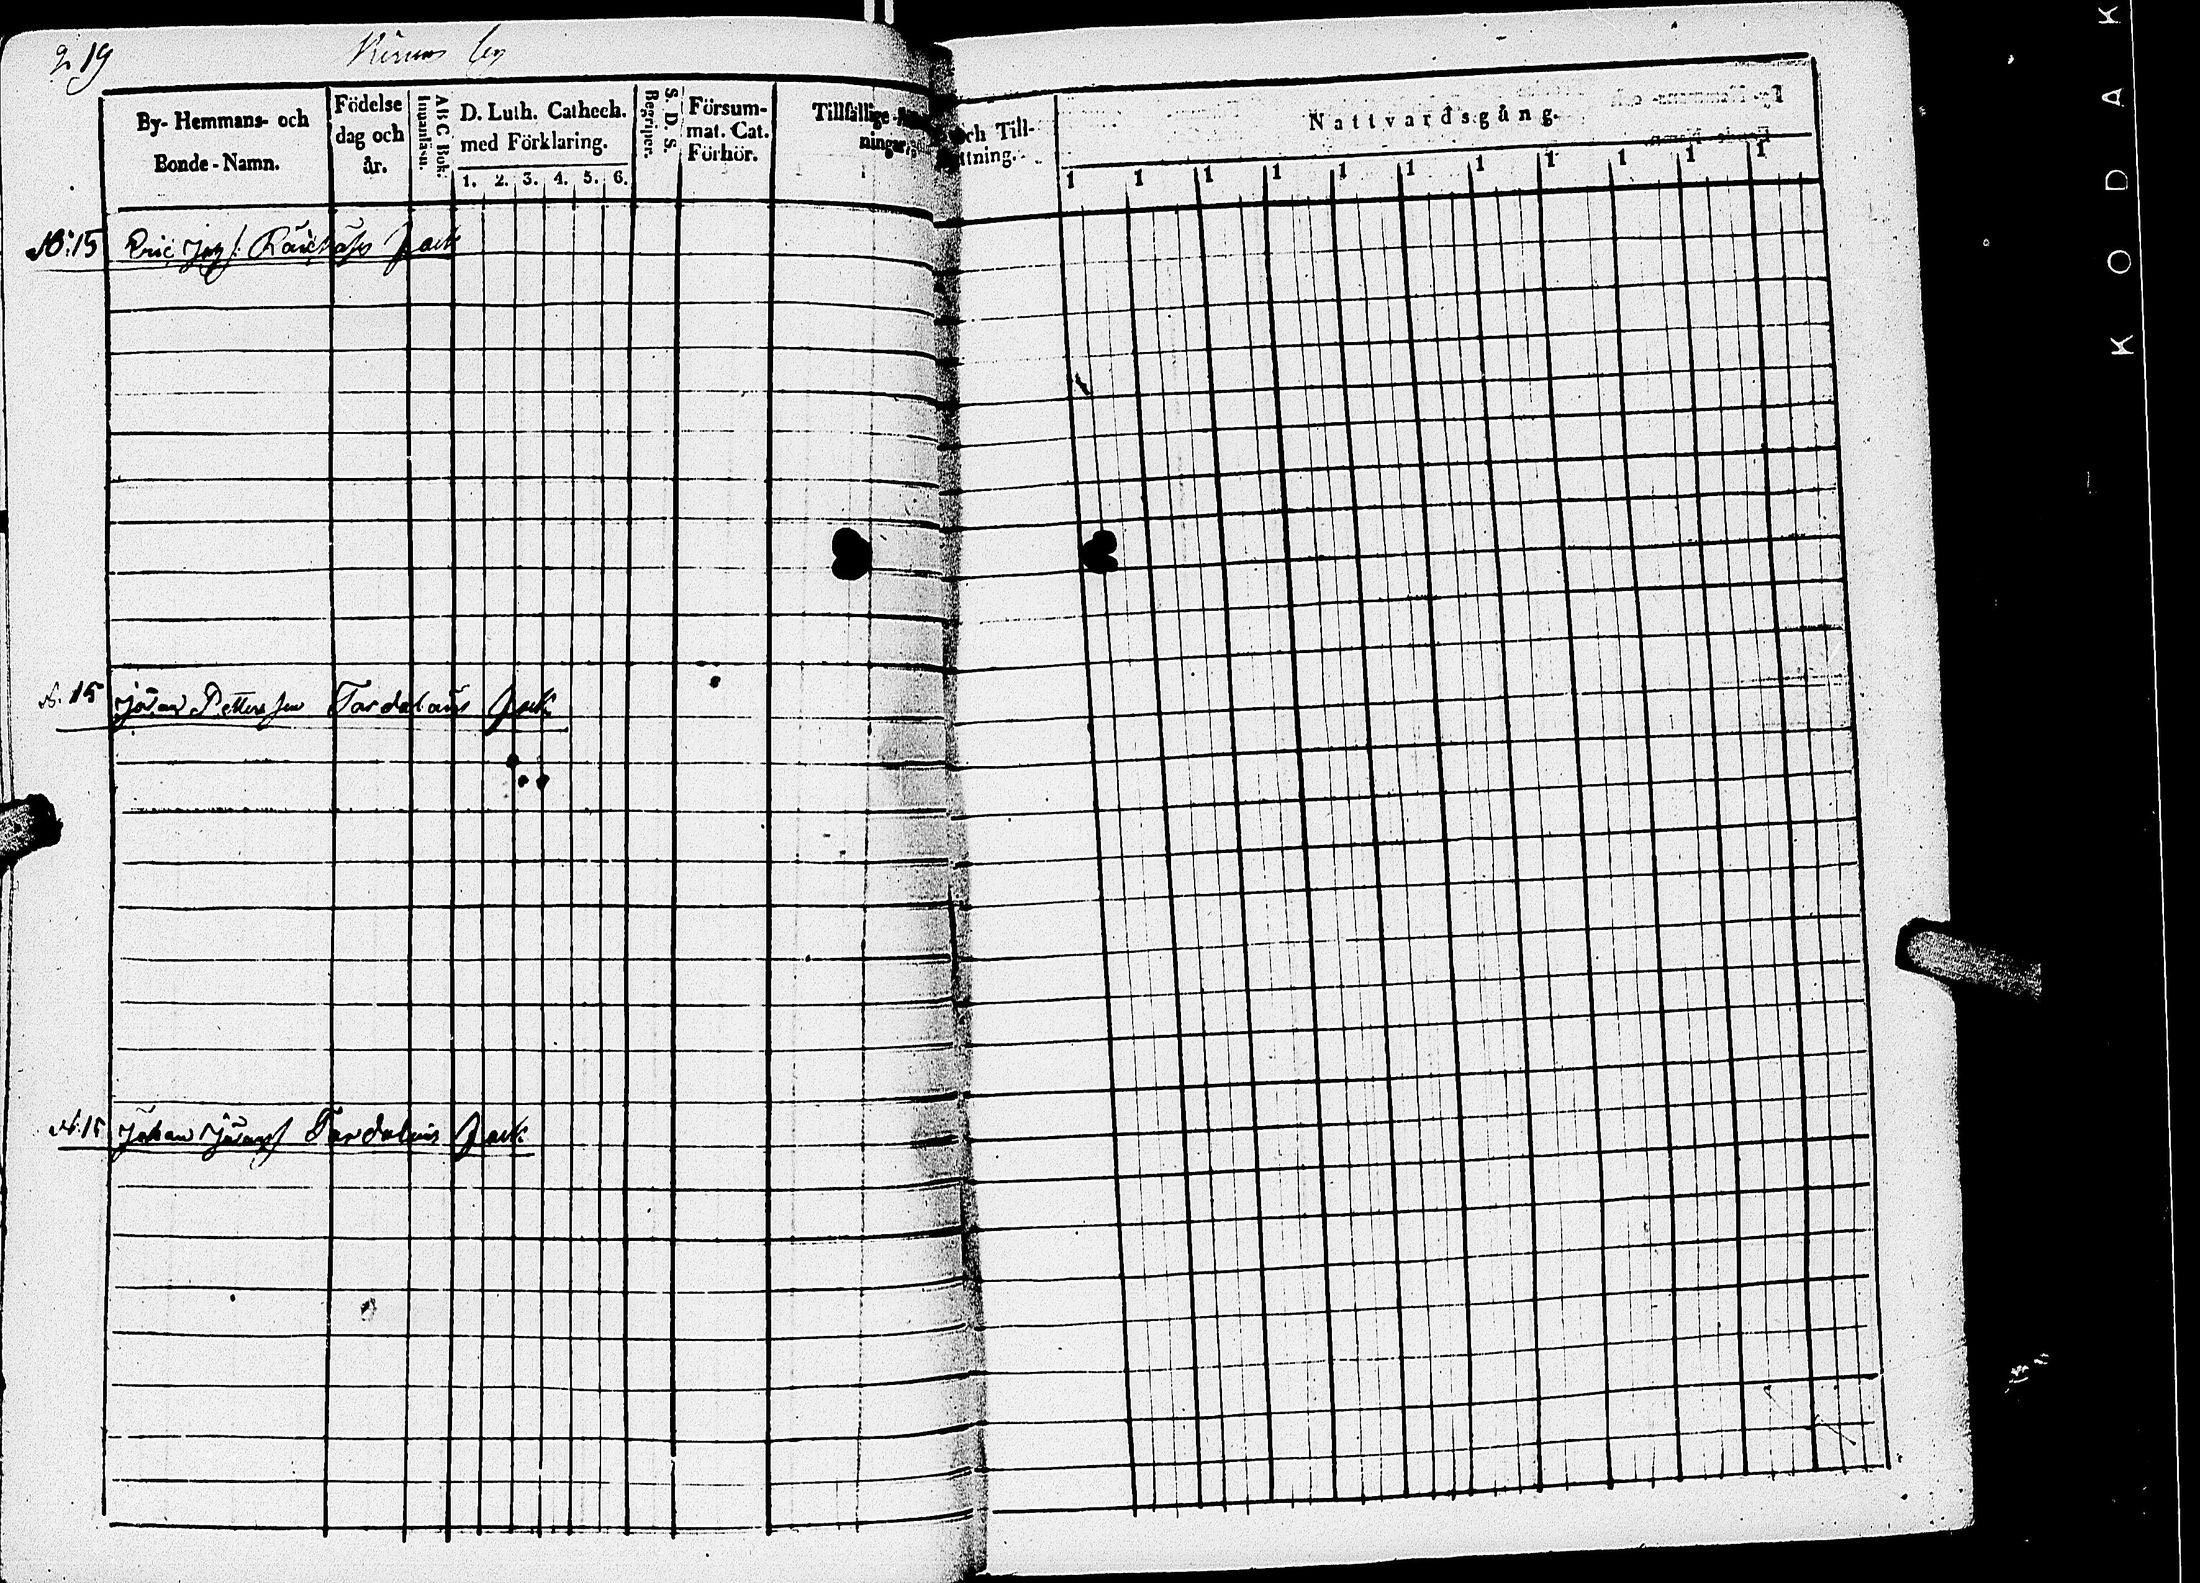 219
by
By- Hemmans- och
Bonde-Namn.
Födelse
dag och
år.
ABC Bok.
Innanläsn.
D. Luth. Cathech.
med Förklaring.
1. 2. 3. 4. 5. 6.
S. D. S.
Begriper.
Försum-
mat. Cat.
Förhör.
Tillfällige
ningar,
och Till-
Nattvardsgång.
1 1 1 1 1 1 1 1 1 1 1
N:15 Eric
N:15 Jöran Pettersson Tardelaus
N:15 Johan Jöransf Tardelaus
KODAK